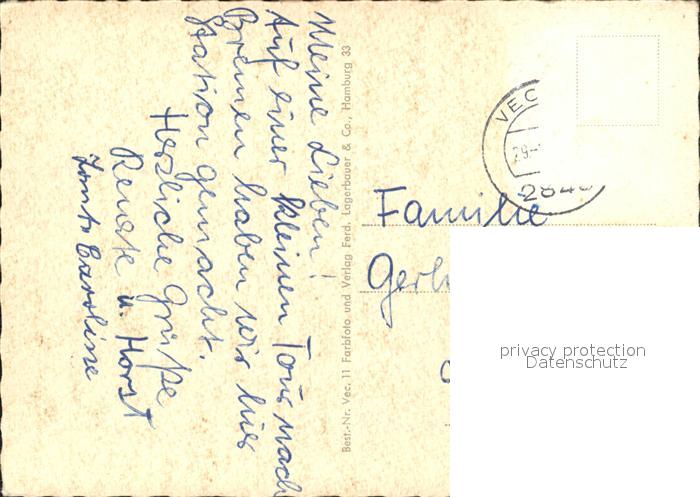 Meine Lieben!
Auf einer kleinen Tour nach
Bremen haben wir hier
Station gemacht.
Herzliche Grüße
Renate u. Horst
Caroline
Best.-Nr. Vec. 11 Farbfoto und Verlag Ferd. Lagerbauer & Co., Hamburg 33
VEC
29.-
2848
Familie
Gerh
privacy protection
Datenschutz